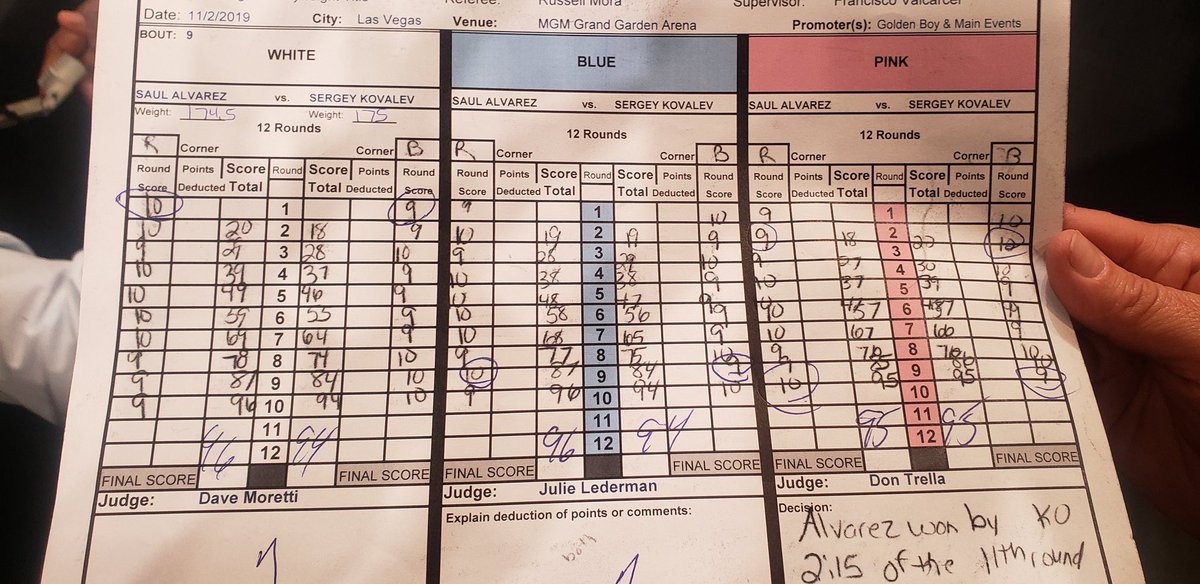 Referee: Russell Mora Supervisor: Francisco Valcarcel
Date: 11/2/2019 City: Las Vegas Venue: MGM Grand Garden Arena Promoter(s): Golden Boy & Main Events
BOUT: 9
WHITE BLUE PINK
SAUL ALVAREZ vs. SERGEY KOVALEV SAUL ALVAREZ vs. SERGEY KOVALEV SAUL ALVAREZ vs. SERGEY KOVALEV
Weight: 174.5 Weight: 175
12 Rounds 12 Rounds 12 Rounds
R Corner Corner B R Corner Corner B R Corner Corner B
Round Points Score Round Score Points Round Round Points Score Round Score Points Round Round Points Score Round Score Points Round
Score Deducted Total Total Deducted Score Score Deducted Total Total Deducted Score Score Deducted Total Total Deducted Score
10 1 9 9 1 10 9 1 10
10 20 2 18 9 10 19 2 19 9 9 18 2 20 10
9 29 3 28 10 9 28 3 29 10 9 27 3 30 10
10 39 4 37 9 10 38 4 38 9 10 37 4 39 9
10 49 5 46 9 10 48 5 47 9 5
10 59 6 55 9 10 58 6 56 9 6 9
10 69 7 64 9 10 68 7 65 9 10 67 7 66 9
9 78 8 74 10 9 77 8 75 10 9 76 8 76 10
9 87 9 84 10 10 87 9 84 9 10 9 9
9 96 10 94 10 9 96 10 94 10 95 10 95
11 11 11
96 12 94 96 12 94 95 12 95
FINAL SCORE FINAL SCORE FINAL SCORE FINAL SCORE FINAL SCORE FINAL SCORE
Judge: Dave Moretti Judge: Julie Lederman Judge: Don Trella
Explain deduction of points or comments: Decision:
Alvarez won by KO
2:15 of the 11th round